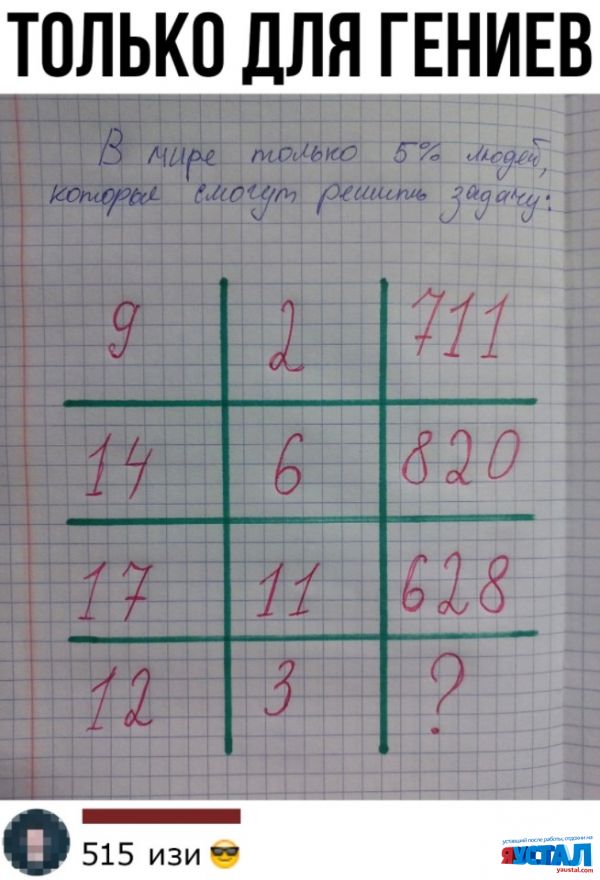 ТОЛЬКО ДЛЯ ГЕНИЕВ
В мире только 5% людей,
которые смогут решить задачу:
9 2 711
14 6 820
17 11 628
12 3 ?
515 изи 😎
уставший после работы, отдохни на
Я УСТАЛ
yaustal.com